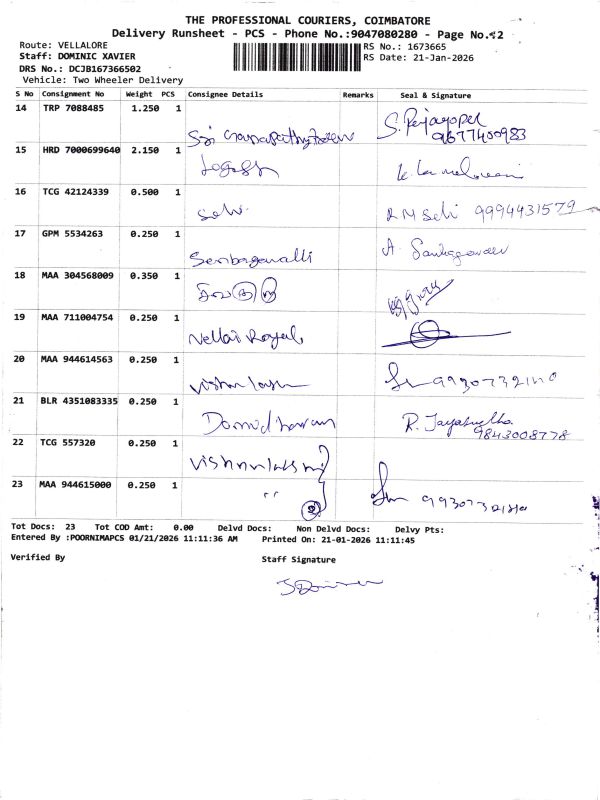 THE PROFESSIONAL COURIERS, COIMBATORE
Delivery Runsheet - PCS - Phone No.:9047080280 - Page No.:2
Route: VELLALORE
RS No.: 1673665
Staff: DOMINIC XAVIER
RS Date: 21-Jan-2026
DRS No.: DCJB167366502
Vehicle: Two Wheeler Delivery
S No Consignment No Weight PCS Consignee Details Remarks Seal & Signature
14 TRP 7088485 1.250 1
9677400983
15 HRD 7000699640 2.150 1
16 TCG 42124339 0.500 1
Selvi 9994431579
17 GPM 5534263 0.250 1
Senbagavalli
18 MAA 304568009 0.350 1
19 MAA 711004754 0.250 1
Vellai Royal
20 MAA 944614563 0.250 1
21 BLR 4351083335 0.250 1
Damodharan
9843008778
22 TCG 557320 0.250 1
23 MAA 944615000 0.250 1
" 2
Tot Docs: 23 Tot COD Amt: 0.00 Delvd Docs: Non Delvd Docs: Delvy Pts:
Entered By :POORNIMAPCS 01/21/2026 11:11:36 AM Printed On: 21-01-2026 11:11:45
Verified By Staff Signature